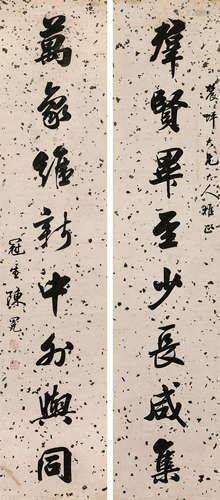 羣賢畢至少長咸集
兄大人雅正
萬象維新中外與同
冠生陳冕